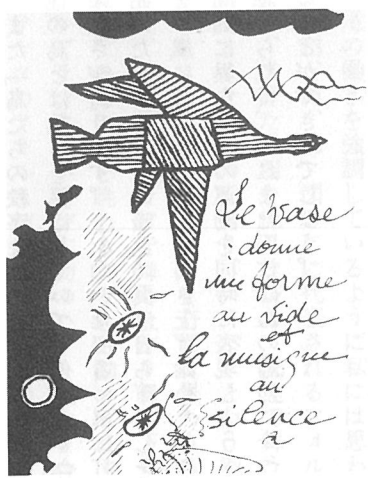 Le vase
: donne
une forme
au vide
et
la musique
au
silence